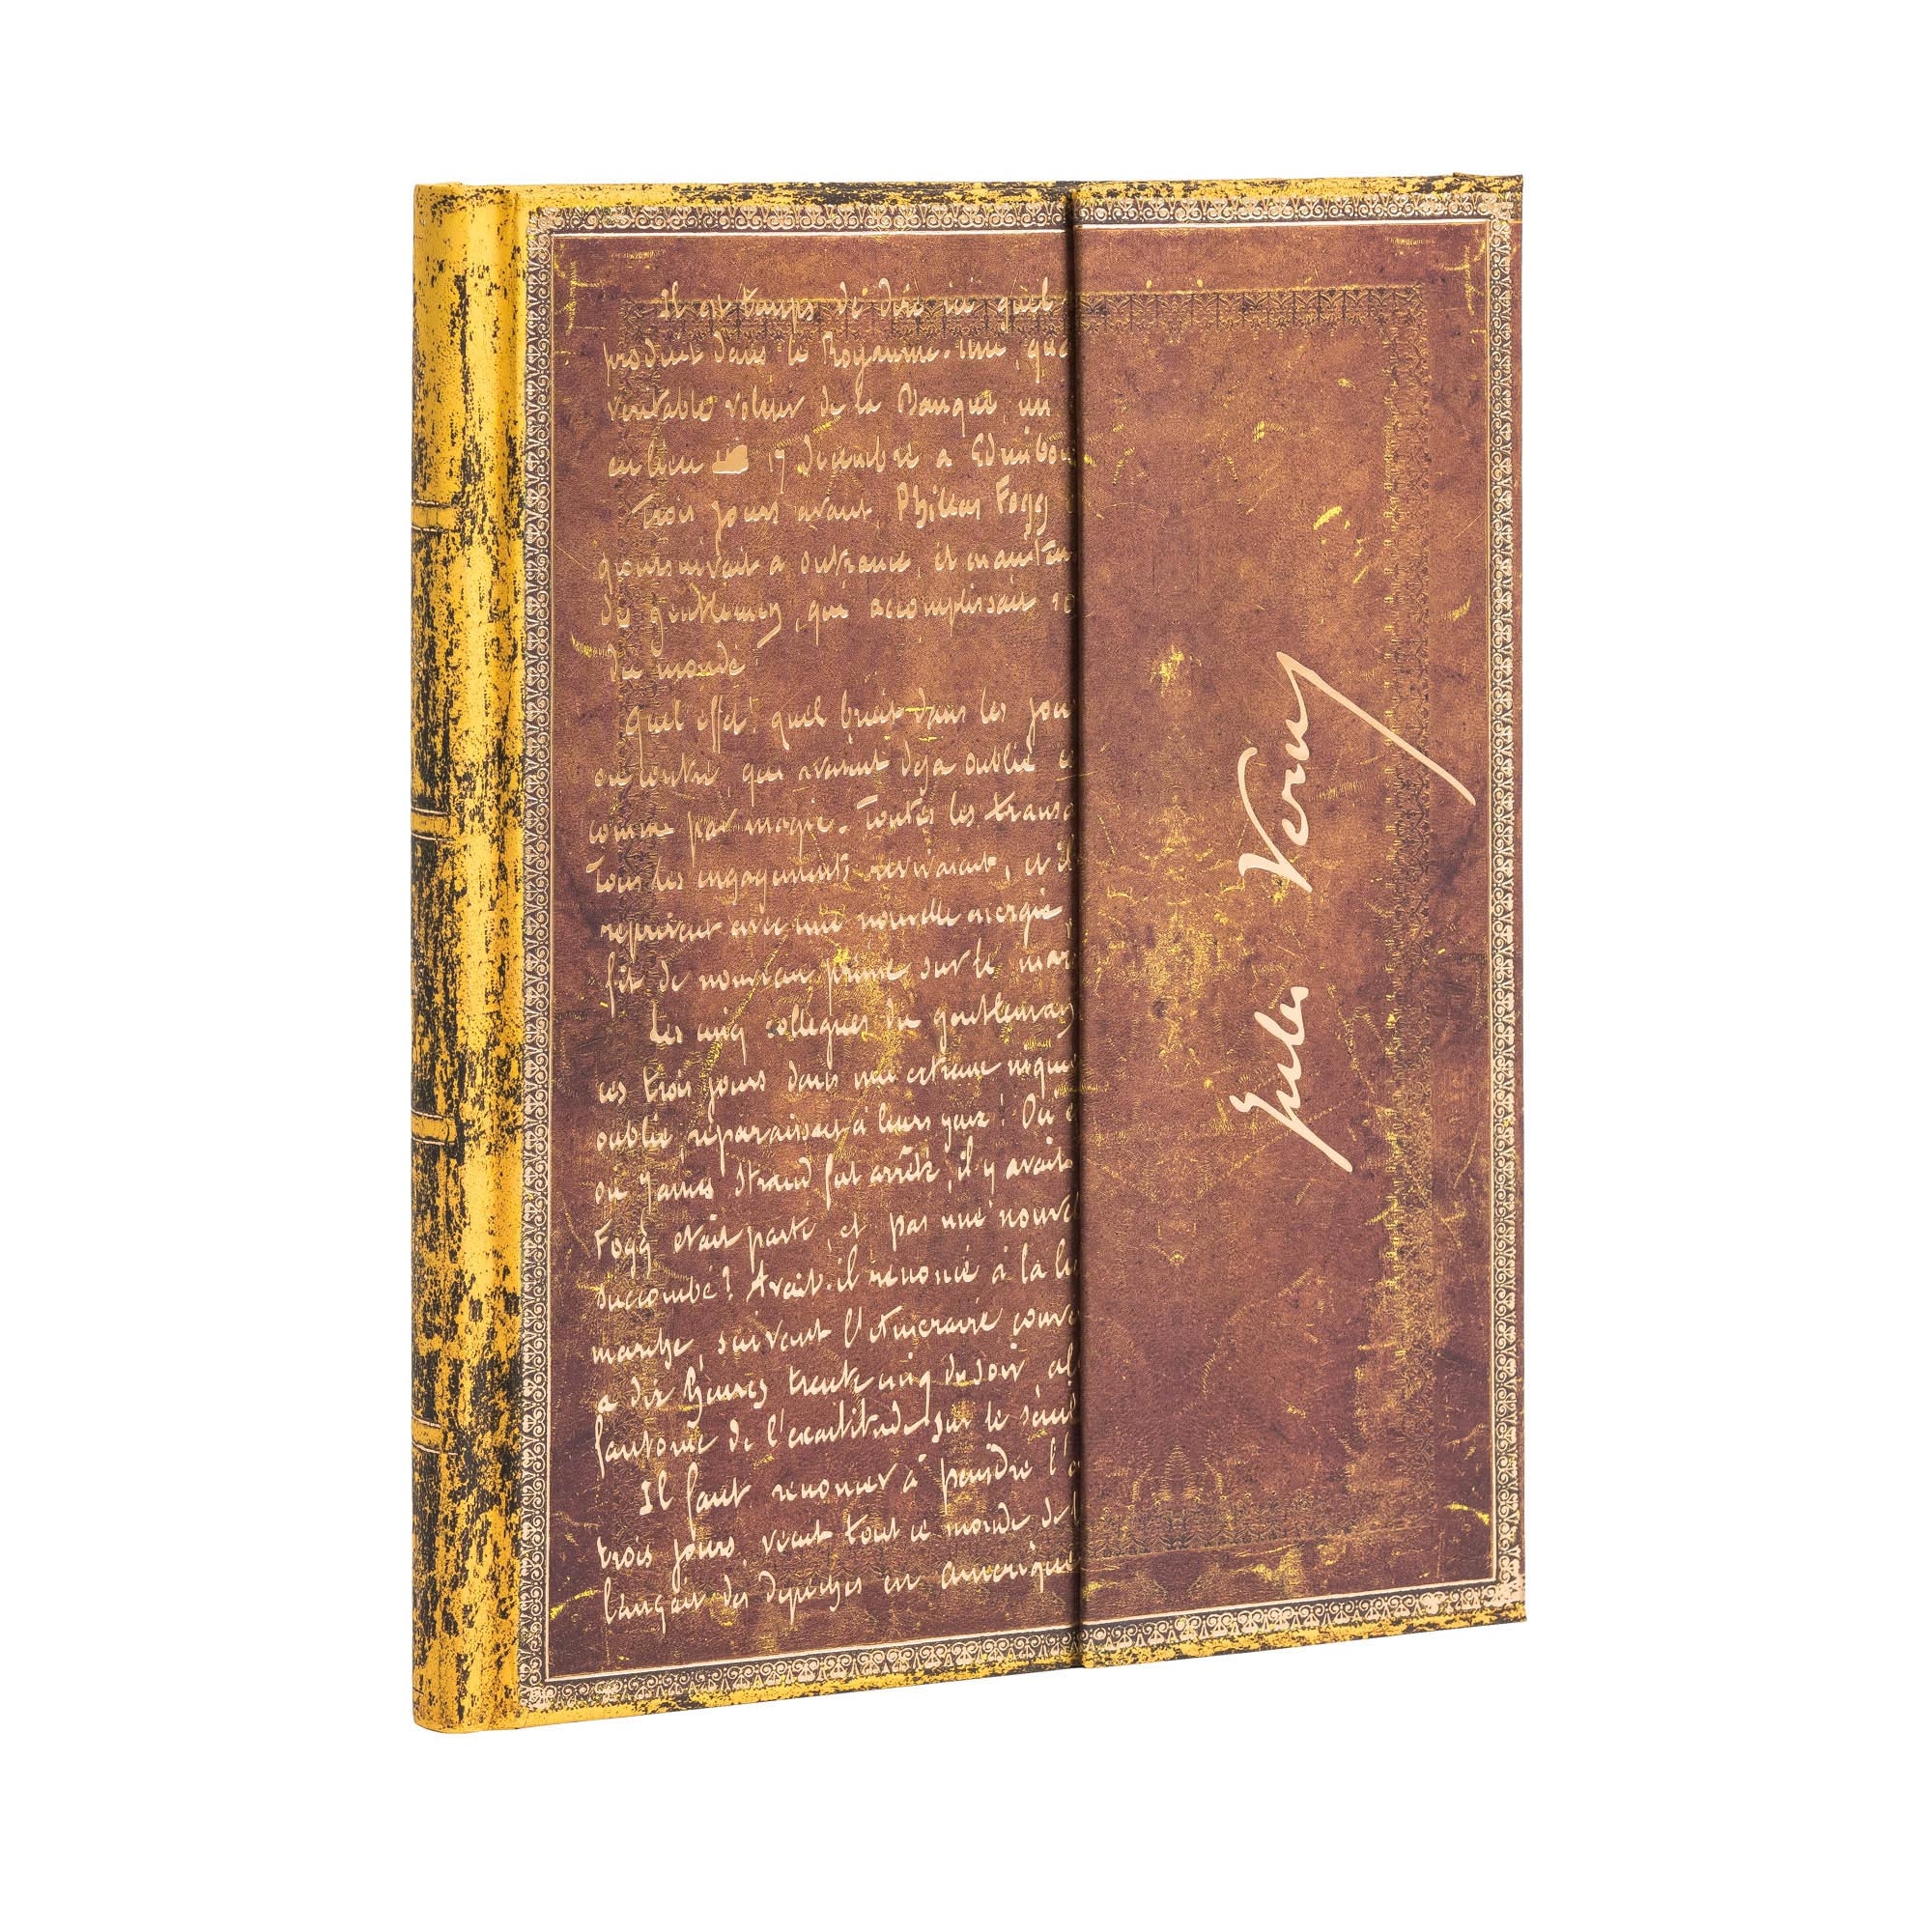 Il est temps de dire ici quel
produit dans le Royaume-Uni, qua
véritable voleur de la Banque, un
eu lieu 17 décembre a Edimbou
Trois jours avant, Phileas Fogg
poursuivait a outrance, et mainten
de gentleman, qui accomplissait so
du monde
Quel effet! quel bruit dans les jou
ou contre, qui avaient deja oublié c
comme par magie. Toutes les transa
Tous les engagements revivaient, et il
reprirent avec une nouvelle energie,
fit de nouveau prime sur le mar
Les cinq collègues du gentleman
ces trois jours dans une extreme inquie
oublié, reparaissait à leurs yeux! Où é
où James Strand fut arrêté, il y avait
Fogg etait parti, et pas une nouvel
succombé? Avait-il renoncé à la lu
marche, suivant l'itineraire conve
a dix heures trente cinq du soir al
fantome de l'exactitude sur le seuil
Il faut renoncer à peindre l'a
trois jours, vécut tout ce monde de l
lançait des depêches en Amerique
Jules Verne